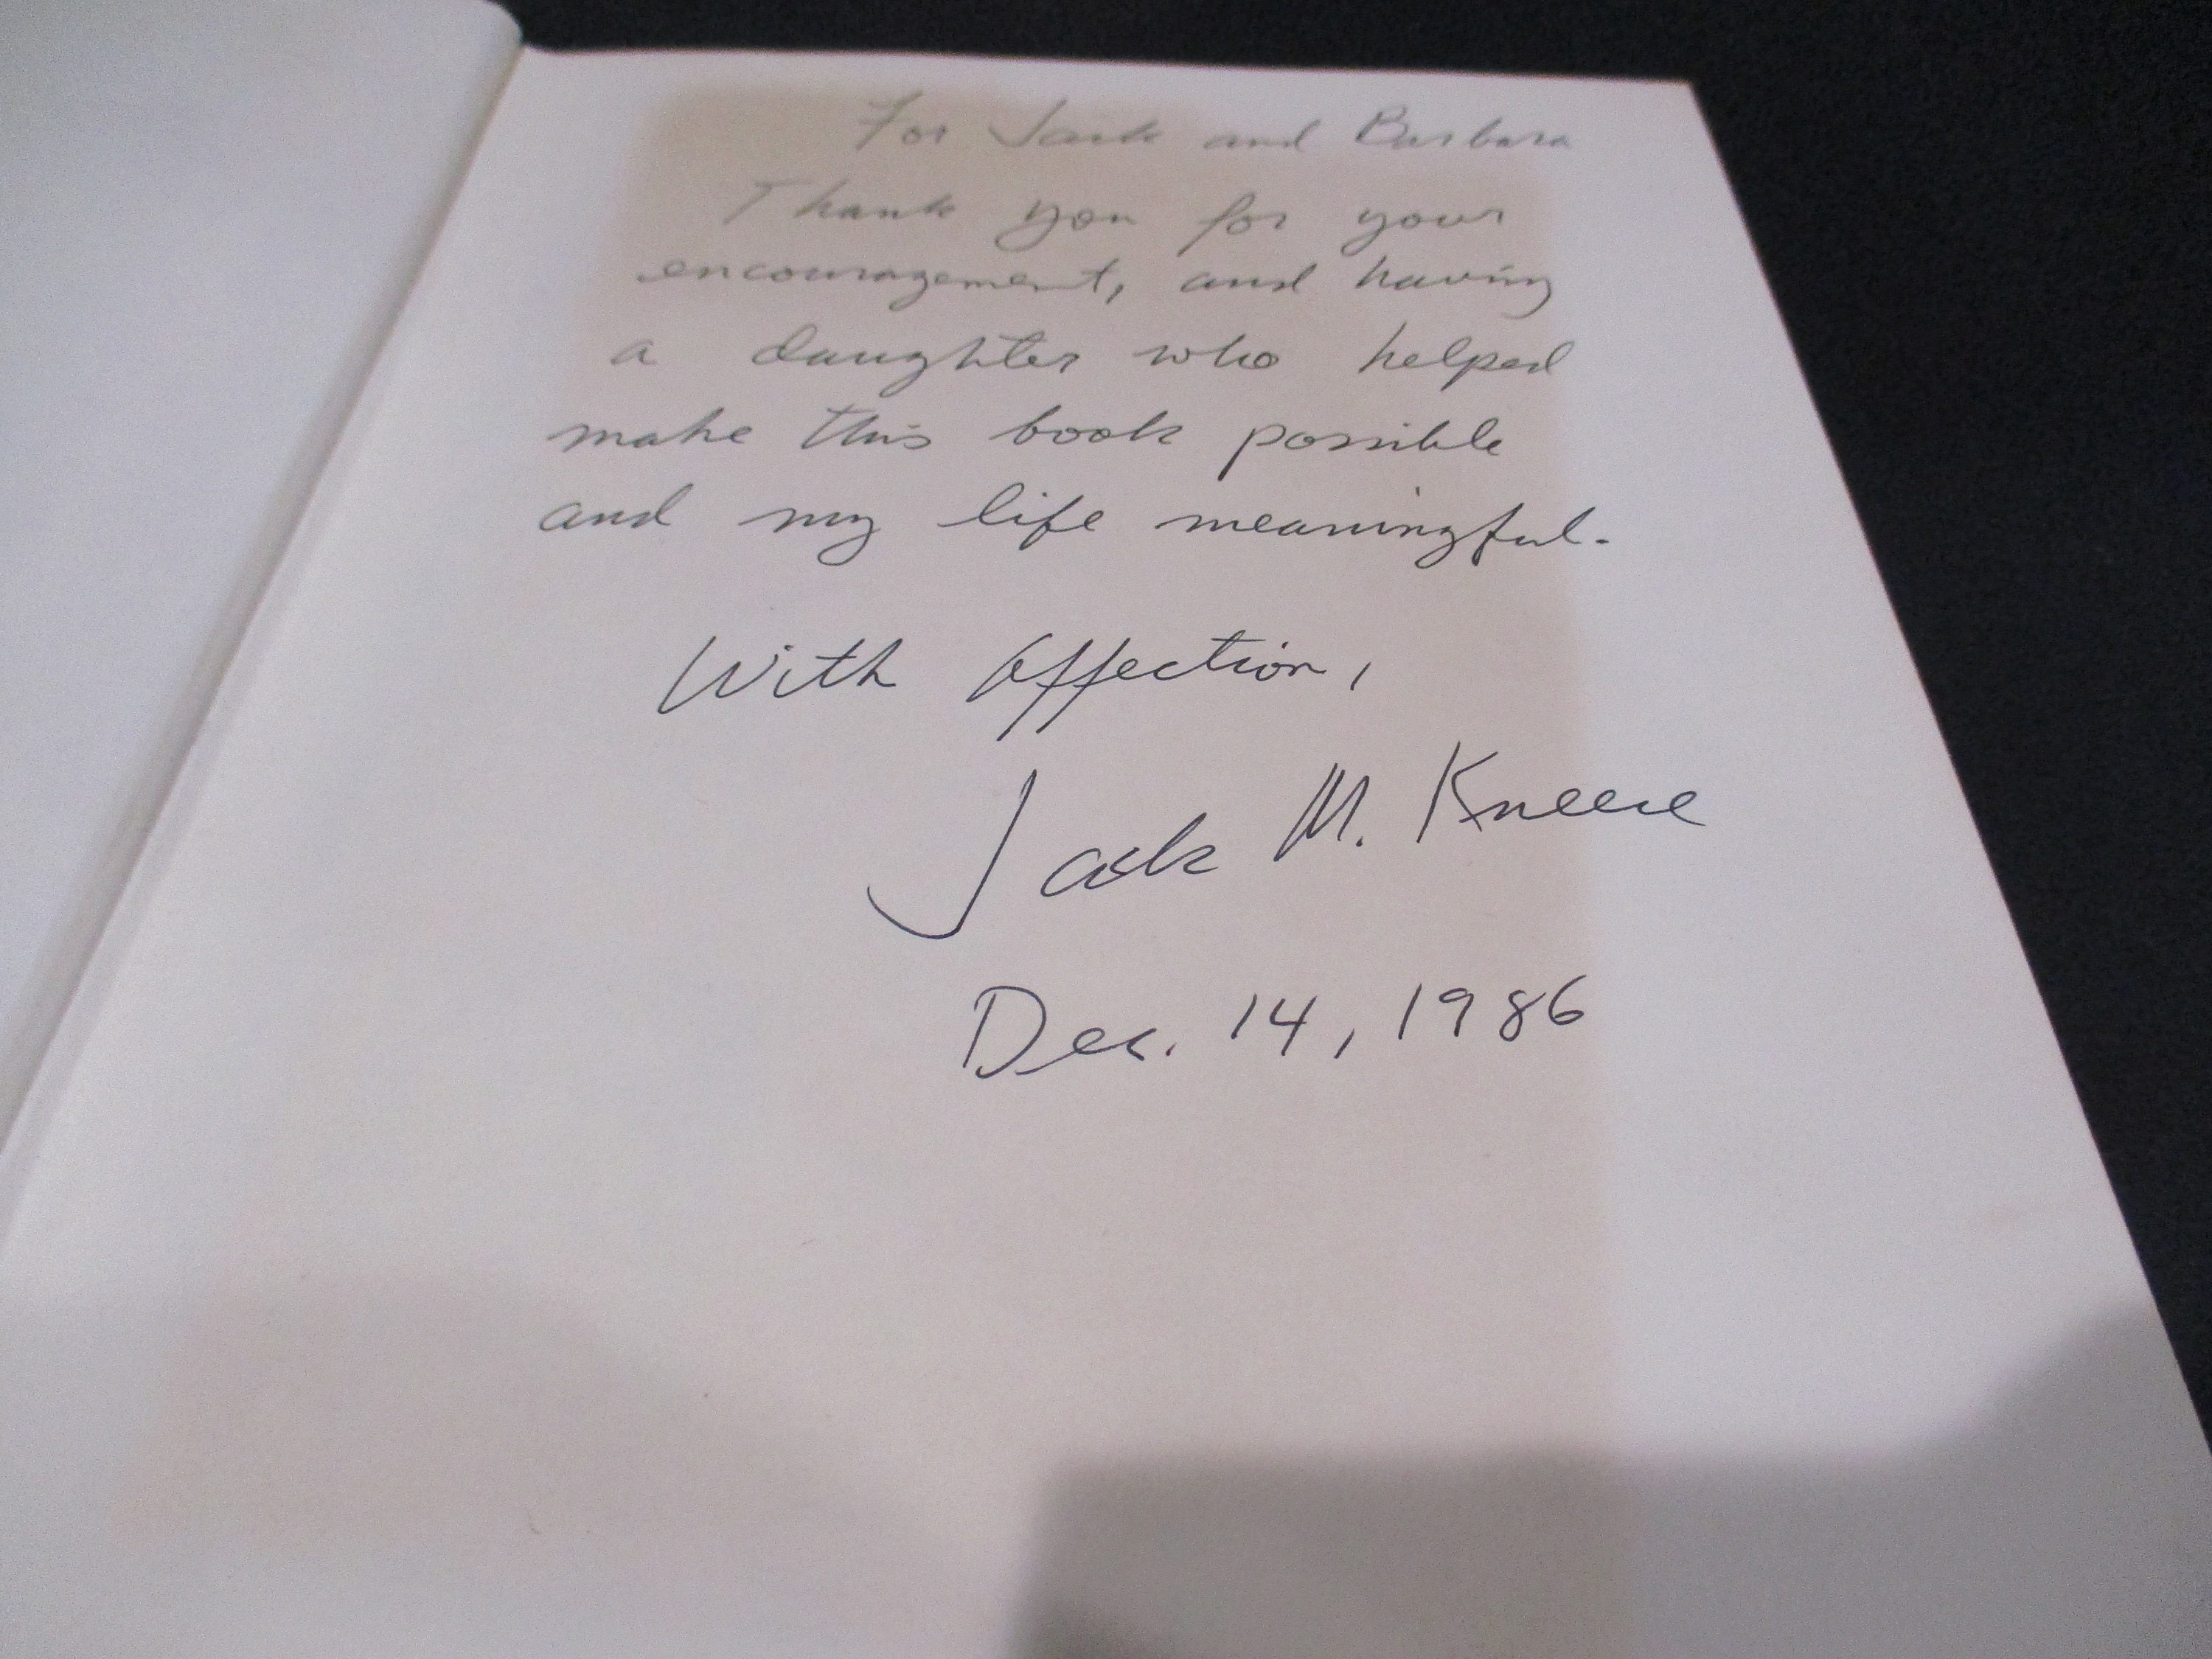 For Jack and Barbara
Thank you for your
encouragement, and having
a daughter who helped
make this book possible
and my life meaningful.
With affection,
Jack M. Kneece
Dec. 14, 1986